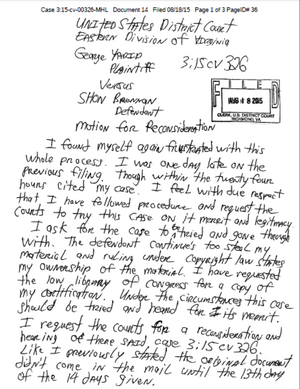 Case 3:15-cv-00326-MHL Document 14 Filed 08/18/15 Page 1 of 3 PageID# 36
UNITED States District Court
EASTERN Division of Virginia
George YARID
Plaintiff
3:15cv326
Versus
SHON Brennan
Defendant
FILED
AUG 18 2015
CLERK, U.S. DISTRICT COURT
RICHMOND, VA
Motion for Reconsideration
I found myself again frustrated with this
whole process. I was one day late on the
previous filing. Though within the twenty four
hours cited my case. I feel with due respect
that I have followed procedure and request the
Courts to try this case on it merit and legitimacy
I ask for the case to be tried and gone through
with. The defendant continue's too steal my
material and ruling under copyright law states
my ownership of the material. I have requested
the law library of congress for a copy of
my certification. Under the circumstances this case
should be tried and heard for its merit.
I request the courts for a reconsideration and
hearing of there said case 3:15 cv 326
Like I previously stated the original document
didn't come in the mail until the 13th day
of the 14 days given.